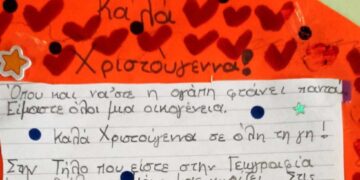 Καλά
Χριστούγεννα!
Όπου και να'στε η αγάπη φτάνει παντα
Είμαστε όλοι μια οικογένεια.
Καλά Χριστόυγεννα σε όλη τη γη!
Στην Τήλο που είστε στην Γεωγραφία